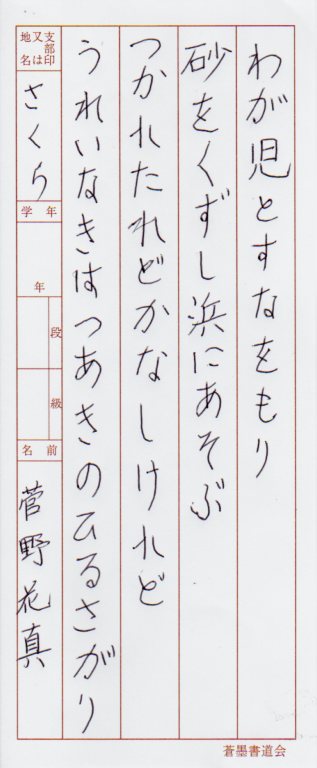 わが児とすなをもり
砂をくずし浜にあそぶ
つかれたれどかなしけれど
うれいなきはつあきのひるさがり
支部印
又は
地名
さくら
学年
年
段
級
名前
菅野花真
蒼墨書道会